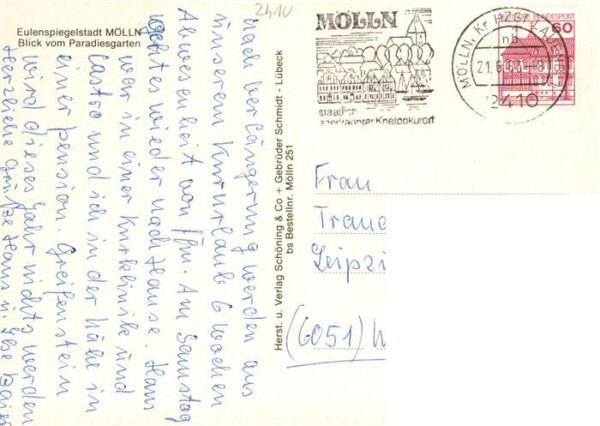 2410
Eulenspiegelstadt MÖLLN
Blick vom Paradiesgarten
Nach Verlängerung werden aus
unserem Kururlaub 6 Wochen
Abwesenheit von Am Samstag
geht es wieder nach Hause. Hans
war in einer Kurklinik und
ich in der Nähe in
einer Pension. Greifenstein
wird dieses Jahr nichts werden
Herzliche Grüße Hans u.
Herst. u. Verlag Schöning & Co + Gebrüder Schmidt - Lübeck
bs Bestellnr. Mölln 251
MÖLLN
staatlich
anerkannter Kneippkurort
MÖLLN, Kr HZGT
nb
21.6.83
2410
BUNDESPOST
60
Frau
Leipzi
(6051)